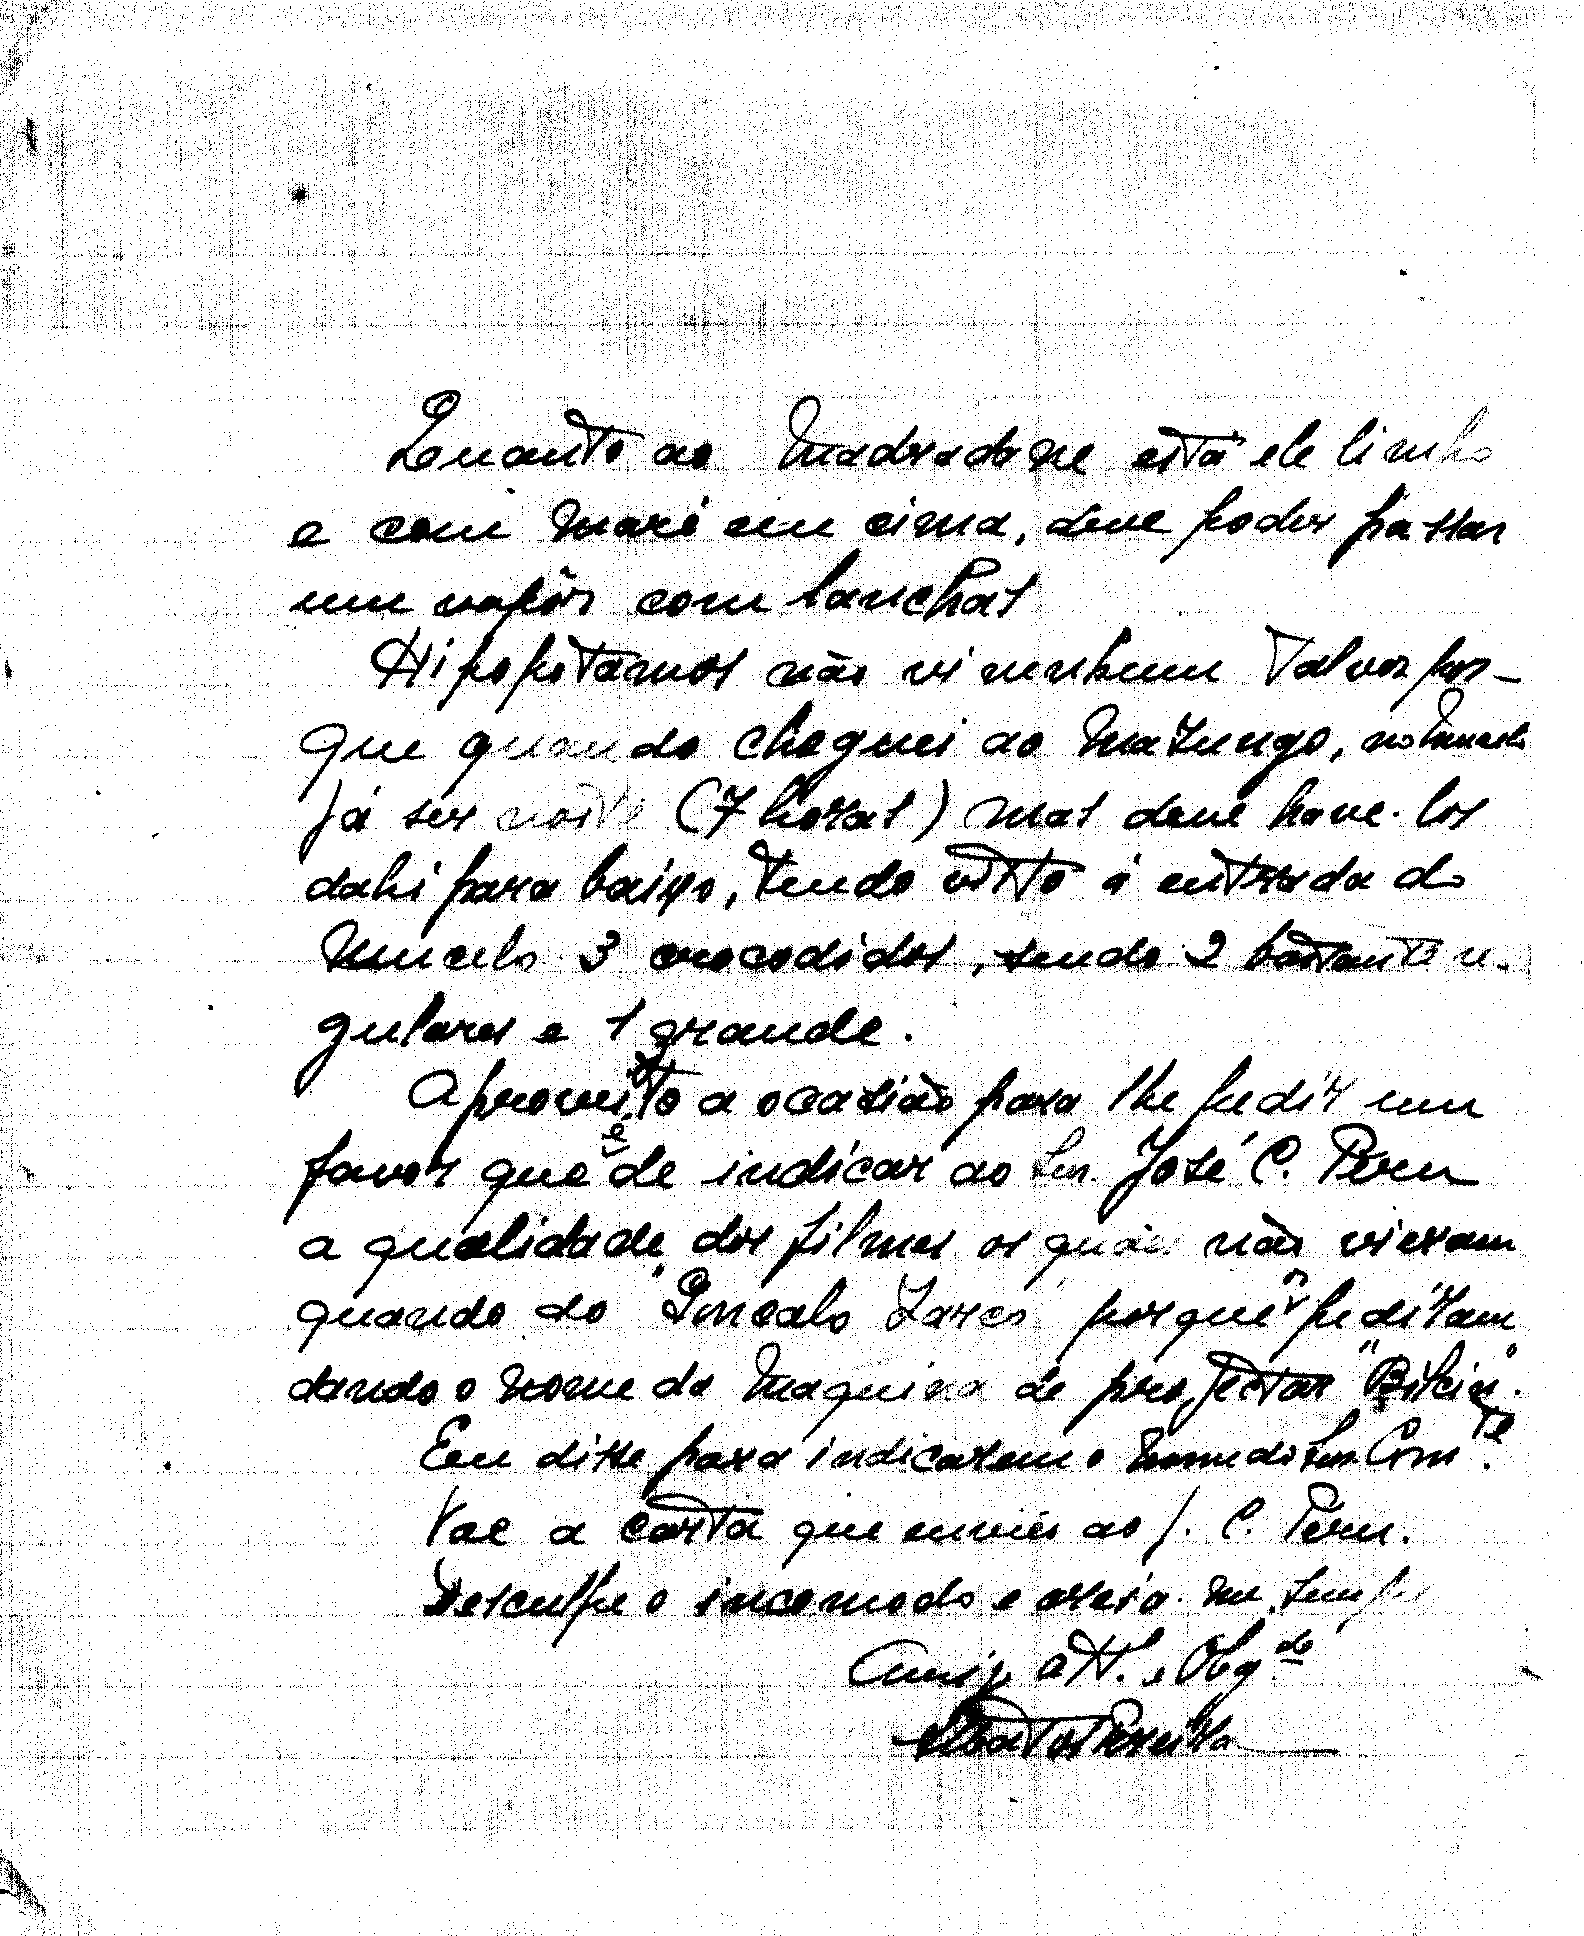 Quanto ao Madradane está ele limpo
e com maré em cima, deve poder passar
um vapôr com lanchas
Hipopótamos não vi nenhum talvez por-
que quando cheguei ao Matungo,
já ser noite (7 horas) mas deve have-los
dahi para baixo, tendo visto á entrada do
Mucelo 3 crocodidos, sendo 2 bastante re-
gulares e 1 grande.
Aproveito a ocasião para lhe pedir um
favor que é de indicar ao Snr. José C. Peru
a qualidade dos filmes os quáes não vieram
quando do "Gonçalo Zarco" porque pediram
dando o nome da maquina de projectar
Eu disse para indicarem o nome do Snr. Comte.
Vae a carta que enviei ao J. C. Peru.
Desculpe o incomodo e creia-me sempre
Amigo att. e Obgdo